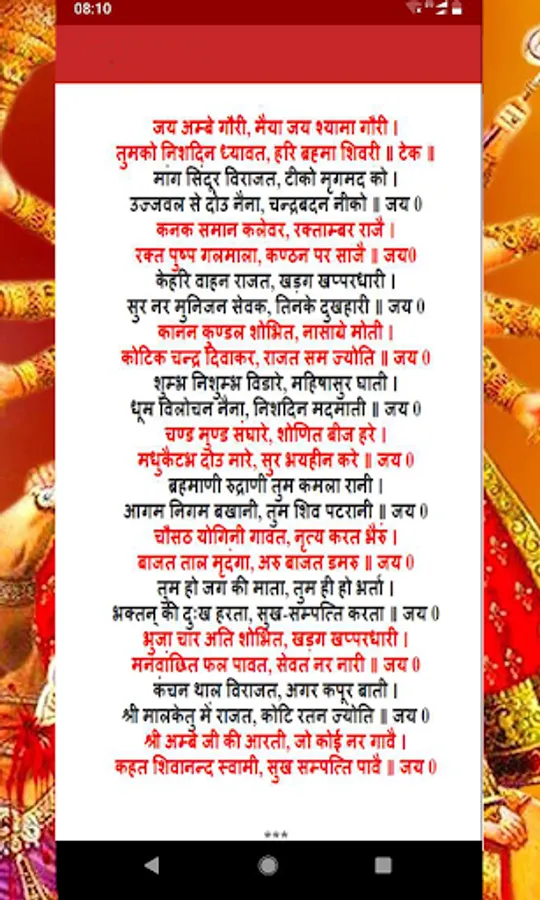 08:10
जय अम्बे गौरी, मैया जय श्यामा गौरी ।
तुमको निशदिन ध्यावत, हरि ब्रहमा शिवरी ॥ टेक ॥
मांग सिंदूर विराजत, टीको मृगमद को ।
उज्जवल से दोउ नैना, चन्द्रबदन नीको ॥ जय 0
कनक समान कलेवर, रक्ताम्बर राजै ।
रक्त पुष्प गलमाला, कण्ठन पर साजै ॥ जय0
केहरि वाहन राजत, खड़ग खप्परधारी ।
सुर नर मुनिजन सेवक, तिनके दुखहारी ॥ जय 0
कानन कुण्डल शोभित, नासाग्रे मोती ।
कोटिक चन्द्र दिवाकर, राजत सम ज्योति ॥ जय 0
शुम्भ निशुम्भ विडारे, महिषासुर घाती ।
धूम विलोचन नैना, निशदिन मदमाती ॥ जय 0
चण्ड मुण्ड संघारे, शोणित बीज हरे ।
मधुकैटभ दोउ मारे, सुर भयहीन करे ॥ जय 0
ब्रहमाणी रुद्राणी तुम कमला रानी ।
आगम निगम बखानी, तुम शिव पटरानी ॥ जय 0
चौसठ योगिनी गावत, नृत्य करत भैरुं ।
बाजत ताल मृदंगा, अरु बाजत डमरु ॥ जय 0
तुम हो जग की माता, तुम ही हो भर्ता ।
भक्तन् की दुःख हरता, सुख-सम्पत्ति करता ॥ जय 0
भुजा चार अति शोभित, खड़ग खप्परधारी ।
मनवांछित फल पावत, सेवत नर नारी ॥ जय 0
कंचन थाल विराजत, अगर कपूर बाती ।
श्री मालकेतु में राजत, कोटि रतन ज्योति ॥ जय 0
श्री अम्बे जी की आरती, जो कोई नर गावै ।
कहत शिवानन्द स्वामी, सुख सम्पत्ति पावै ॥ जय 0
***